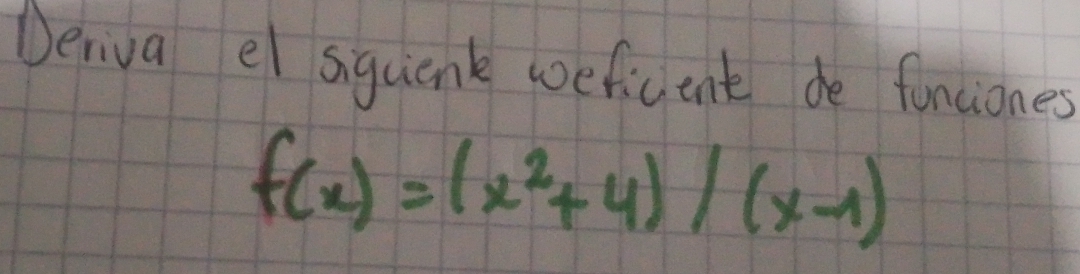 Deriva el siguiente coeficiente de funciones
f(x) = (x²+4) / (x-1)